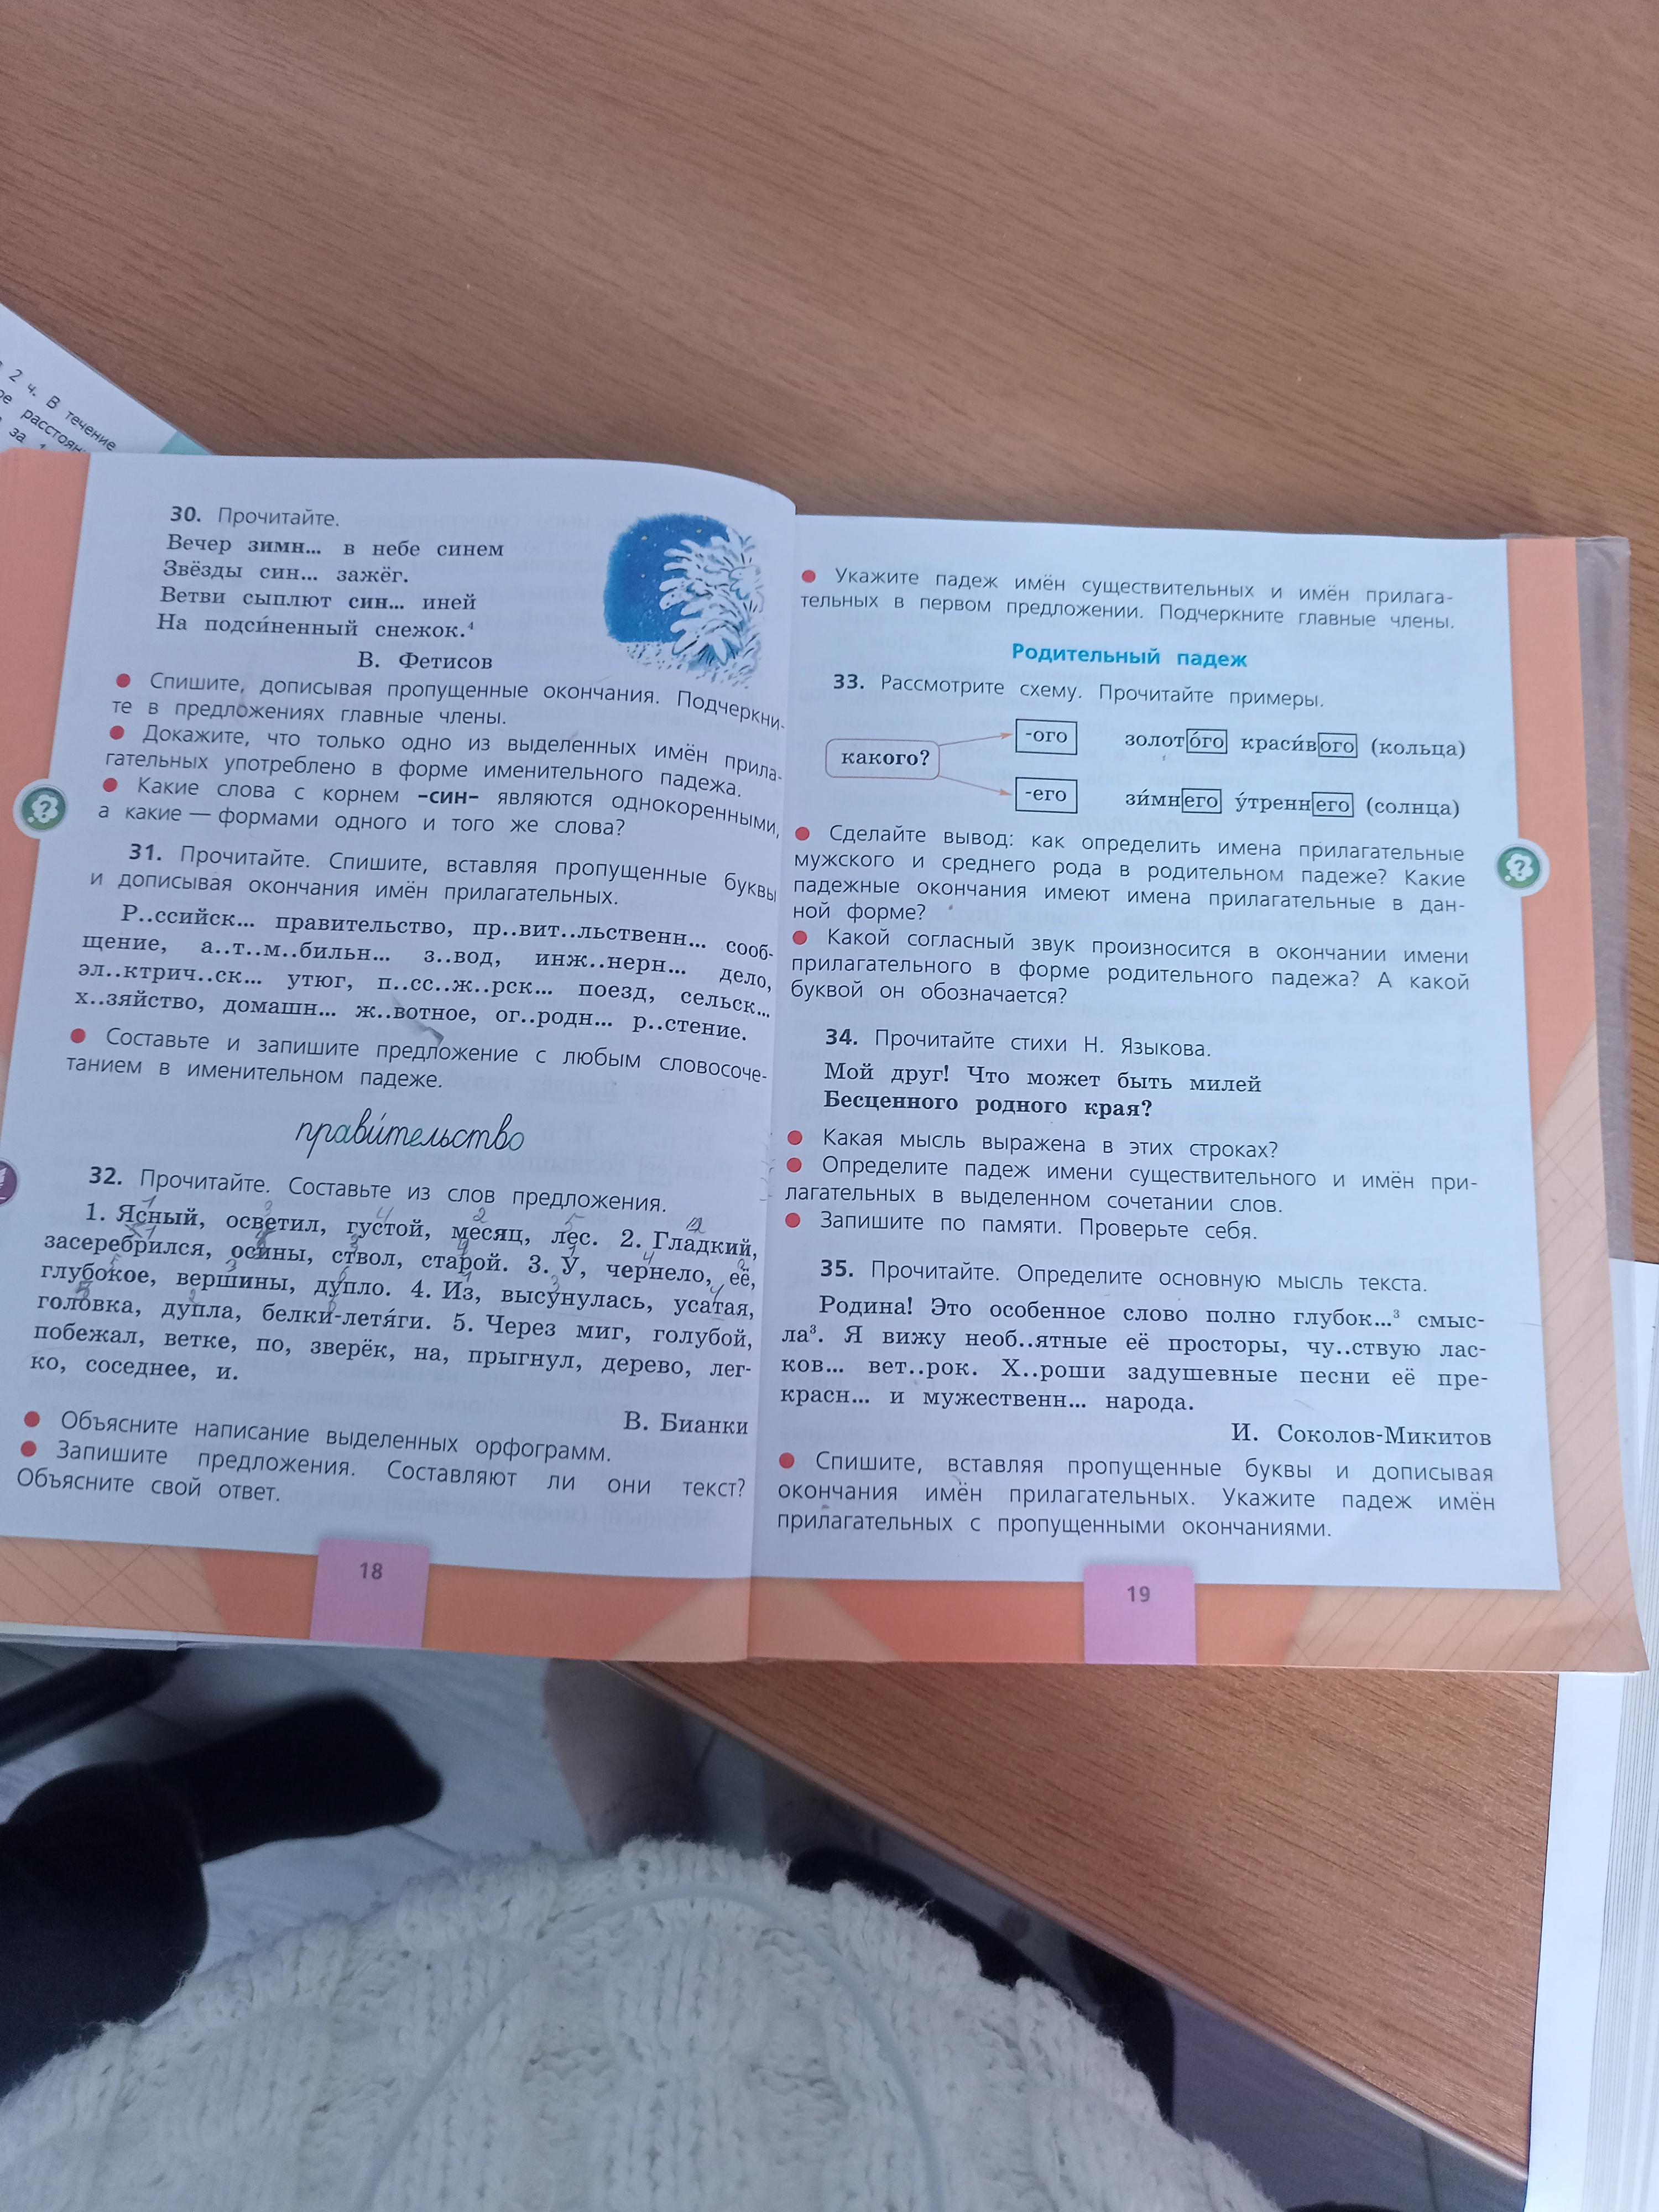 2 ч. В течение
расстоян
за
30. Прочитайте.
Вечер зимн... в небе синем
Звёзды син... зажёг.
Ветви сыплют син... иней
На подси́ненный снежок.⁴
В. Фетисов
● Спишите, дописывая пропущенные окончания. Подчеркни-
те в предложениях главные члены.
● Докажите, что только одно из выделенных имён прила-
гательных употреблено в форме именительного падежа.
● Какие слова с корнем -син- являются однокоренными,
а какие — формами одного и того же слова?
31. Прочитайте. Спишите, вставляя пропущенные буквы
и дописывая окончания имён прилагательных.
Р..ссийск... правительство, пр..вит..льственн... сооб-
щение, а..т..м..бильн... з..вод, инж..нерн... дело,
эл..ктрич..ск... утюг, п..сс..ж..рск... поезд, сельск...
х..зяйство, домашн... ж..вотное, ог..родн... р..стение.
● Составьте и запишите предложение с любым словосоче-
танием в именительном падеже.
прави́тельство
32. Прочитайте. Составьте из слов предложения.
1. Ясный, осветил, густой, месяц, лес. 2. Гладкий,
засеребрился, осины, ствол, старой. 3. У, чернело, её,
глубокое, вершины, дупло. 4. Из, высунулась, усатая,
головка, дупла, белки-летя́ги. 5. Через миг, голубой,
побежал, ветке, по, зверёк, на, прыгнул, дерево, лег-
ко, соседнее, и.
В. Бианки
● Объясните написание выделенных орфограмм.
● Запишите предложения. Составляют ли они текст?
Объясните свой ответ.
18
● Укажите падеж имён существительных и имён прилага-
тельных в первом предложении. Подчеркните главные члены.
Родительный падеж
33. Рассмотрите схему. Прочитайте примеры.
какого?
-ого золото́го краси́вого (кольца)
-его зи́мнего у́треннего (солнца)
● Сделайте вывод: как определить имена прилагательные
мужского и среднего рода в родительном падеже? Какие
падежные окончания имеют имена прилагательные в дан-
ной форме?
● Какой согласный звук произносится в окончании имени
прилагательного в форме родительного падежа? А какой
буквой он обозначается?
34. Прочитайте стихи Н. Языкова.
Мой друг! Что может быть милей
Бесценного родного края?
● Какая мысль выражена в этих строках?
● Определите падеж имени существительного и имён при-
лагательных в выделенном сочетании слов.
● Запишите по памяти. Проверьте себя.
35. Прочитайте. Определите основную мысль текста.
Родина! Это особенное слово полно глубок...³ смыс-
ла³. Я вижу необ..ятные её просторы, чу..ствую лас-
ков... вет..рок. Х..роши задушевные песни её пре-
красн... и мужественн... народа.
И. Соколов-Микитов
● Спишите, вставляя пропущенные буквы и дописывая
окончания имён прилагательных. Укажите падеж имён
прилагательных с пропущенными окончаниями.
19